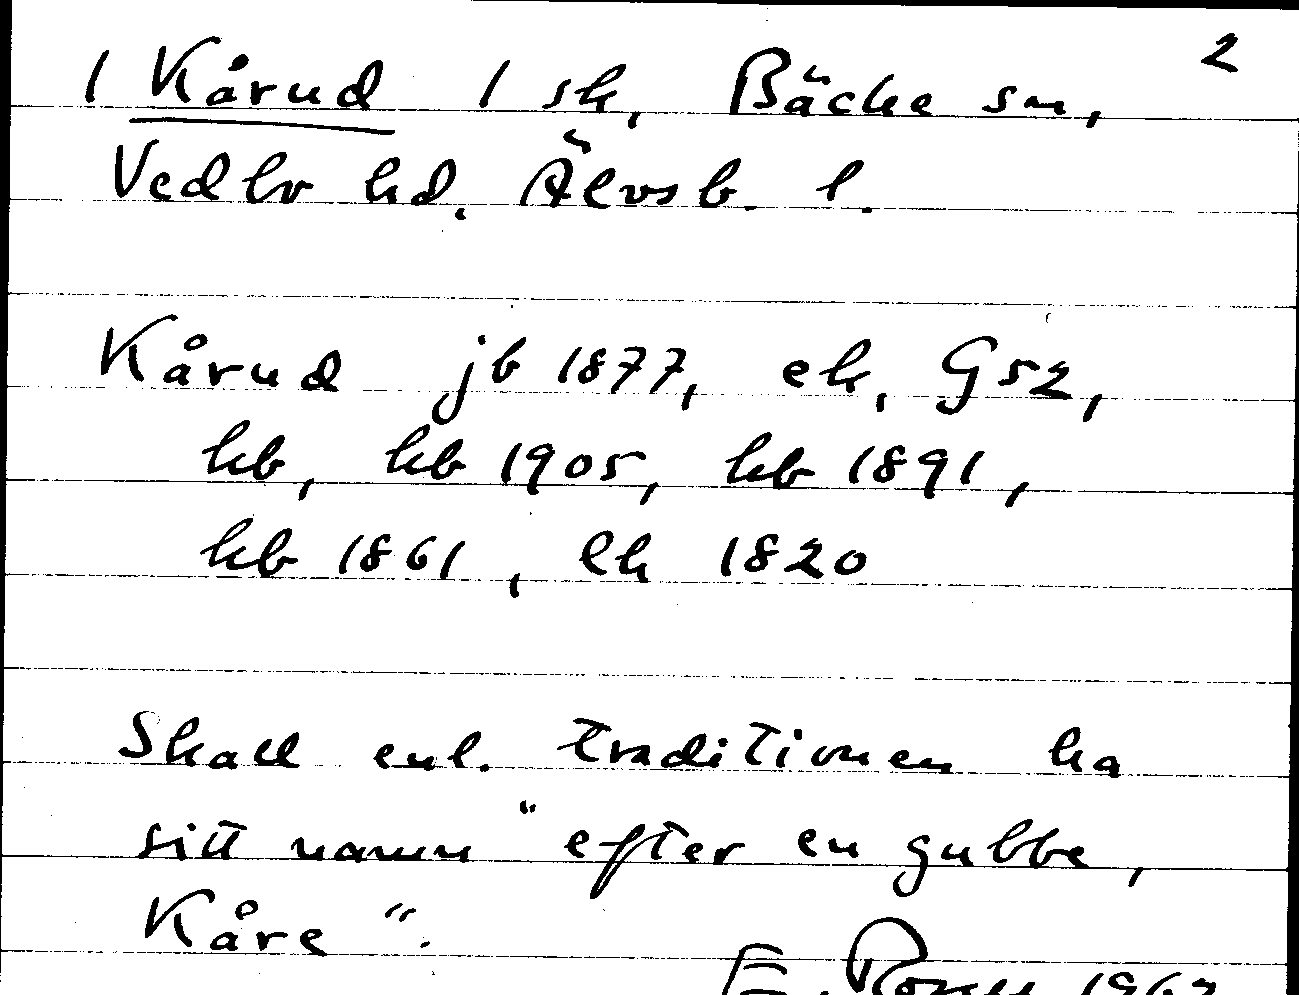 2
1 Kårud 1 sk, Bäcke sn,
Vedbo hd. Älvsb. l.
Kårud jb 1877, ek, G52,
hb, hb 1905, hb 1891,
hb 1861, Ek 1820
Skall enl. traditionen ha
sitt namn "efter en gubbe,
Kåre".
E.